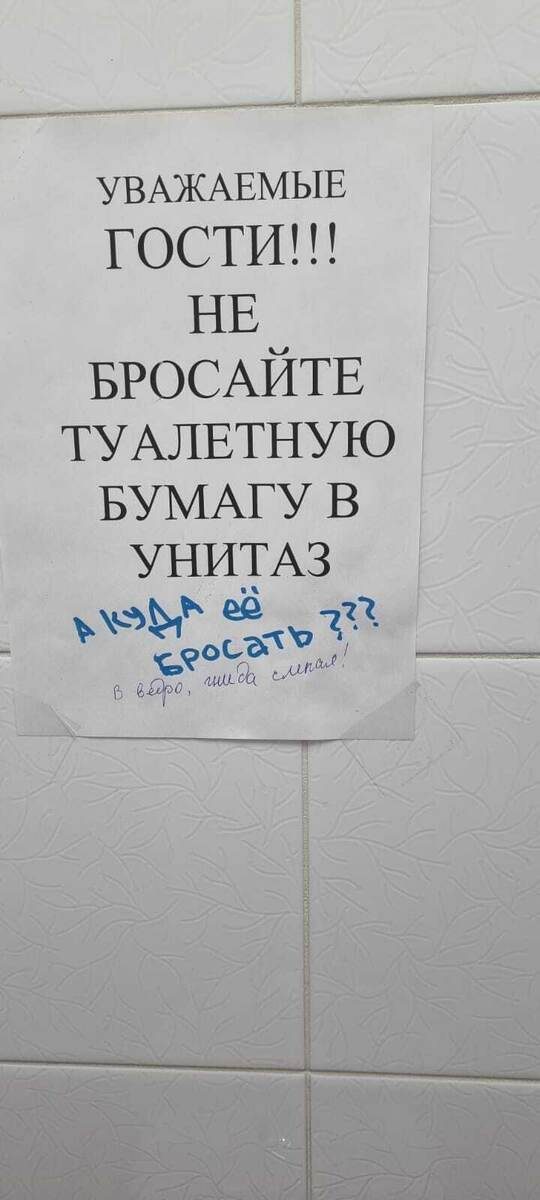 УВАЖАЕМЫЕ
ГОСТИ!!!
НЕ
БРОСАЙТЕ
ТУАЛЕТНУЮ
БУМАГУ В
УНИТАЗ
А КУДА её
БРОСАТЬ ???
В ведро, гнида слепая!